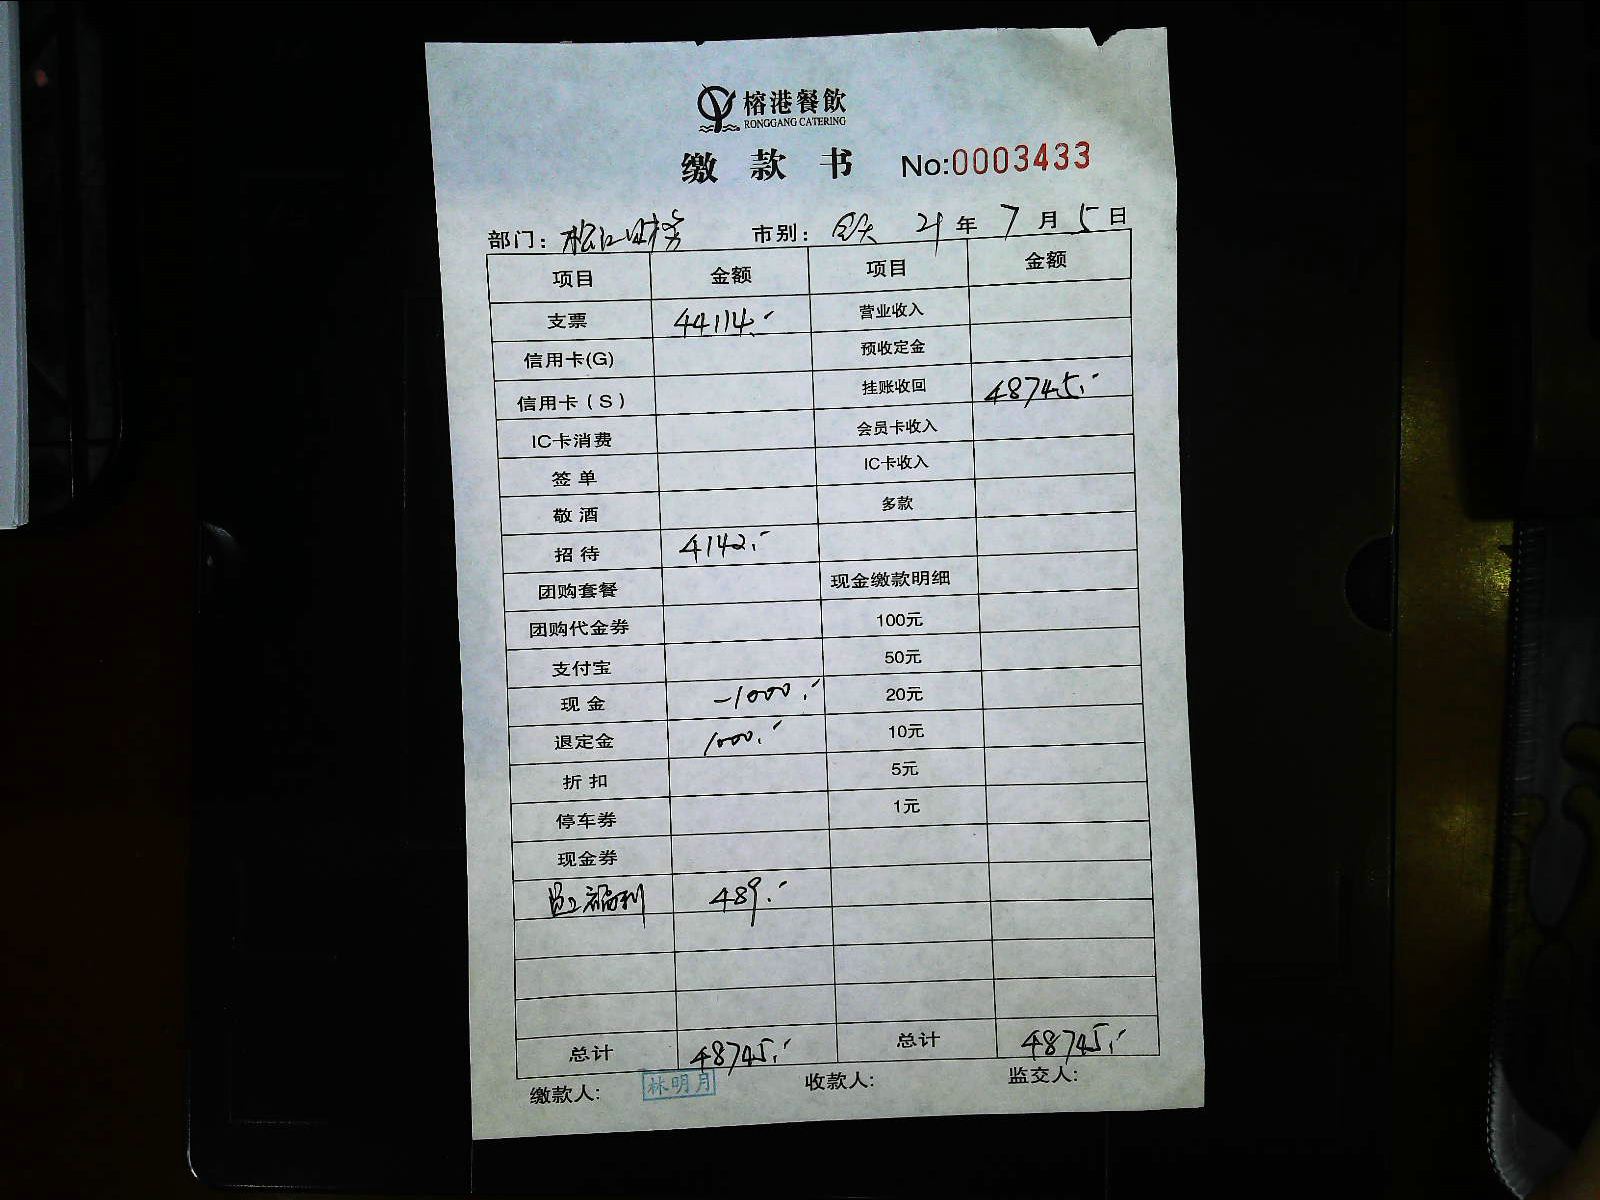 榕港餐飲
RONGGANG CATERING
缴款书 No:0003433
部门: 松江财务 市别: 全天 21年7月5日
项目 金额 项目 金额
支票 44114.- 营业收入
信用卡(G) 预收定金
信用卡(S) 挂账收回 48745.-
IC卡消费 会员卡收入
签单 IC卡收入
敬酒 多款
招待 4142.-
团购套餐 现金缴款明细
团购代金券 100元
支付宝 50元
现金 -1000.- 20元
退定金 1000.- 10元
折扣 5元
停车券 1元
现金券
员工福利 489.-
总计 48745.- 总计 48745.-
缴款人: 林明月 收款人: 监交人: